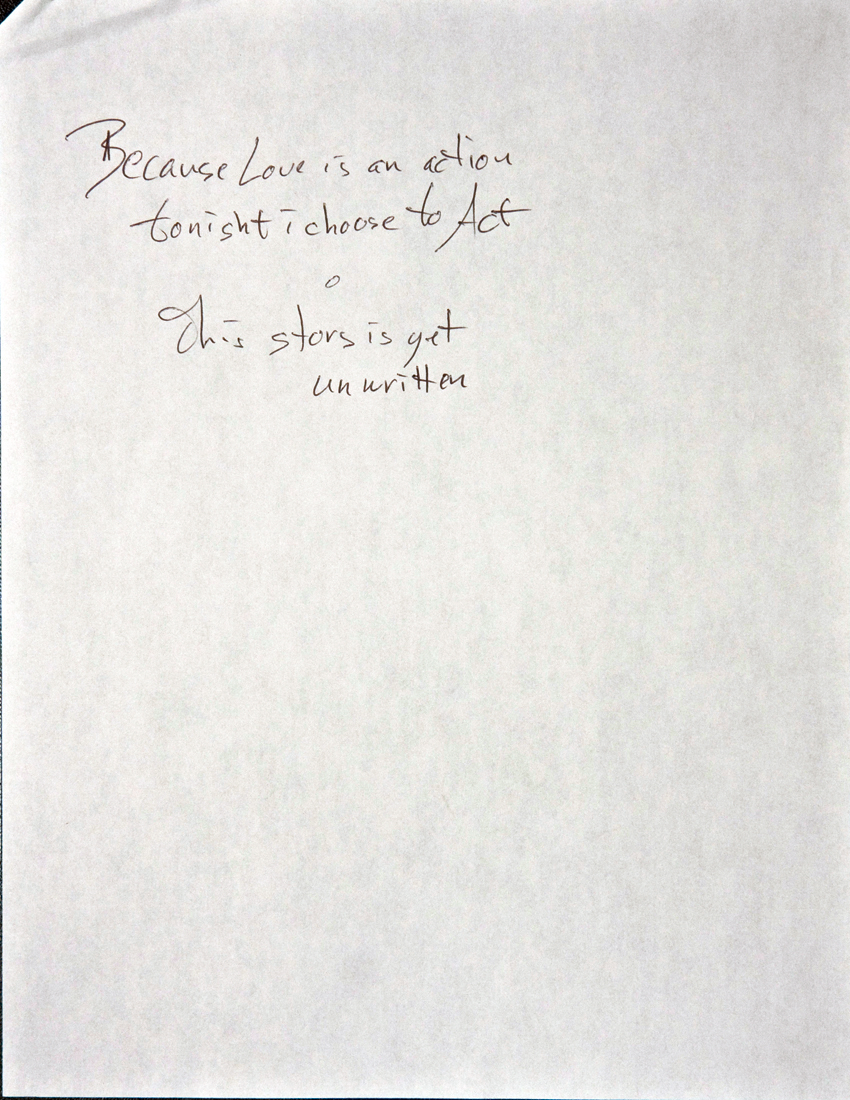 Because Love is an action
tonight i choose to Act
o
This story is yet
unwritten